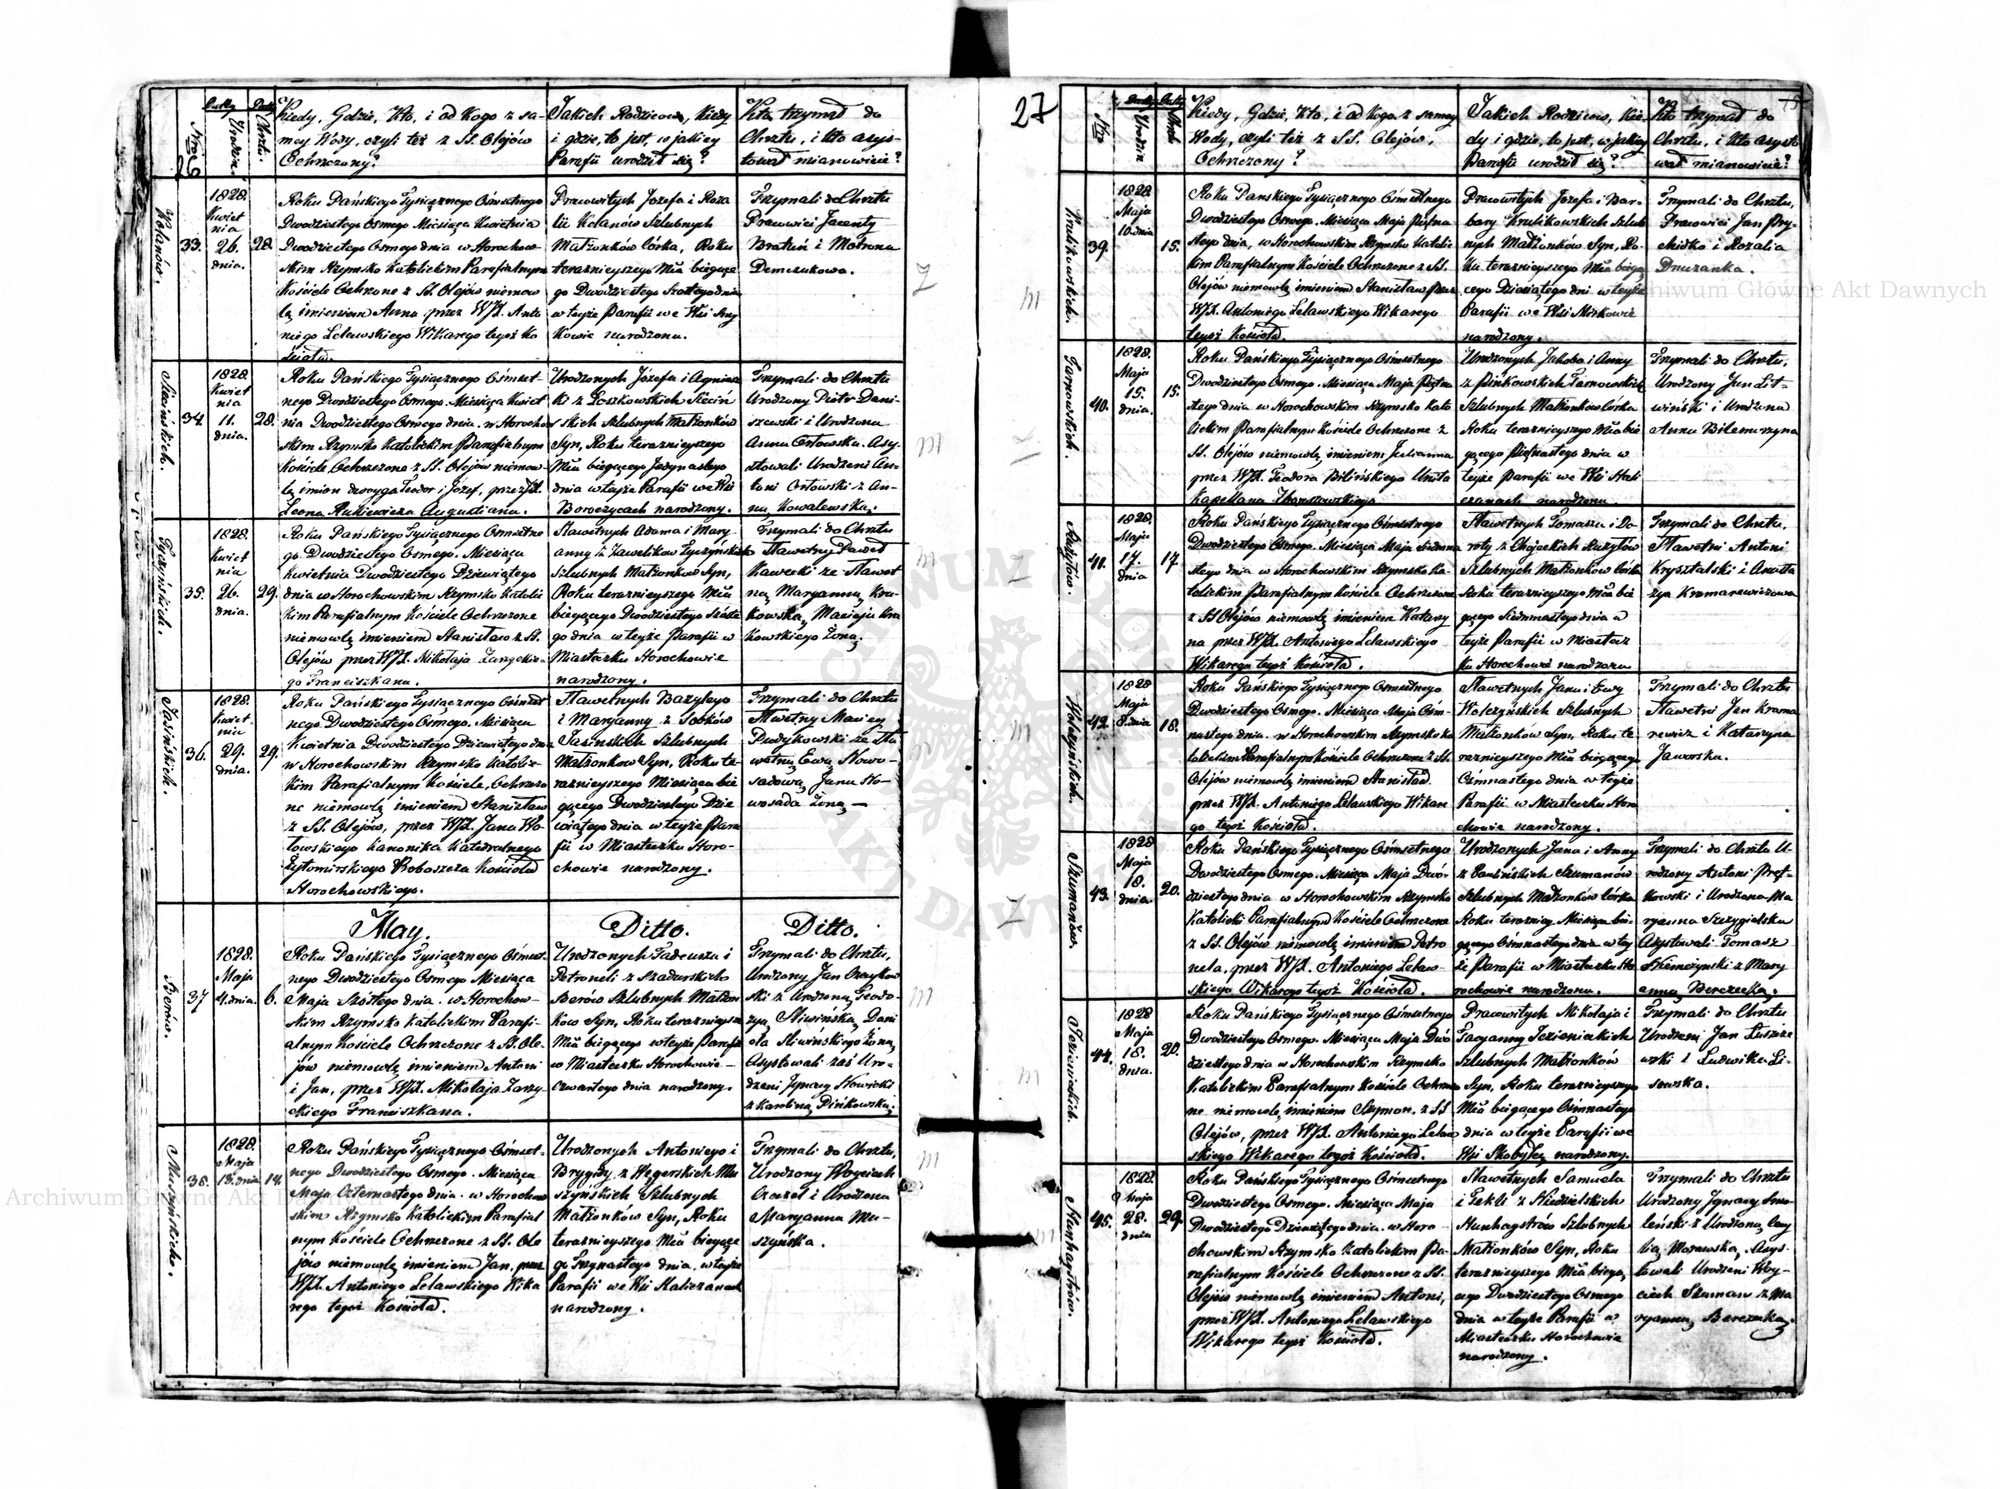 26
Nro
Daty Urodzin
Daty Chrztu.
Kiedy, Gdzie, Kto, i od Kogo z sa-
mey Wody, czyli też z S.S. Olejów
Ochrzczony?
Jakich Rodziców, Kiedy
i gdzie, to jest, w jakiey
Parafii urodził się?
Kto trzymał do
Chrztu, i kto asys-
tował mianowicie?
Kolanów.
33.
1828.
Kwiet
nia
26.
dnia.
28.
Roku Pańskiego Tysiącznego Ośmsetnego
Dwudziestego Osmego Miesiąca Kwietnia
Dwudziestego Osmego dnia w Horochow-
skim Rzymsko Katolickim Parafialnym
Kościele Ochrzcone z SS. Olejów niemow
lę imieniem Anna przez WJX. Anto
niego Lelawskiego Wikarego tegoż Ko
ścioła.
Pracowitych Józefa i Roza
lii Kolanów Szlubnych
Małżonków Córka, Roku
teraznieyszego Mca bieżące
go Dwudziestego Szostego dnia
w teyże Parafii we Wsi
Kowie narodzona.
Trzymali do Chrztu
Pracowici Jacenty
Bratuń i Motrona
Demczukowa.
34.
1828.
Kwiet
nia
11.
dnia.
28.
Roku Pańskiego Tysiącznego Ośmset-
nego Dwudziestego Osmego. Miesiąca Kwiet
nia Dwudziestego Osmego dnia. w Horochow
skim Rzymsko Katolickim Parafialnym
Kościele Ochrzczone z SS. Olejów niemow-
lę imion dwoyga Teodor i Józef, przez JX.
Leona Rukiewicza Augustiana.
Urodzonych Józefa i Agniesz
ki z Leszkowskich
skich Szlubnych Małżonków
Syn, Roku teraznieyszego
Mca bieżącego Jedynastego
dnia w teyże Parafii we Wsi
Boroczycach narodzony.
Trzymali do Chrztu
Urodzony Piotr Dani-
szewski i Urodzona
Anna Orłowska. Asy-
stowali Urodzeni An-
toni Orłowski z An-
ną Kowalewską.
Tyczyńskich.
35.
1828.
Kwiet
nia
26.
dnia.
29.
Roku Pańskiego Tysiącznego Ośmsetne
go Dwudziestego Osmego. Miesiąca
Kwietnia Dwudziestego Dziewiątego
dnia w Horochowskim Rzymsko Katolic
kim Parafialnym Kościele Ochrzczone
niemowlę imieniem Stanisław z SS.
Olejów przez WJX. Mikołaja Zarzyckie-
go Franciszkana.
Sławetnych Adama i Mary-
anny z Zawelików Tyczyńskich
Szlubnych Małżonków Syn,
Roku teraznieyszego Mca
bieżącego Dwudziestego Szóste
go dnia w teyże Parafii w
Miasteczku Horochowie
narodzony.
Trzymali do Chrztu
Sławetny Paweł
Kawecki ze Sławet
ną Maryanną Kra-
kowską, Macieja Kra
kowskiego Żoną.
Jasińskich.
36.
1828.
Kwiet-
nia
29.
dnia.
29.
Roku Pańskiego Tysiącznego Ośmset
nego Dwudziestego Osmego. Miesiąca
Kwietnia Dwudziestego Dziewiątego dnia
w Horochowskim Rzymsko Katolic-
kim Parafialnym Kościele, Ochrzczo
ne niemowlę imieniem Stanisław
z SS. Olejów, przez WJX. Jana Wo
łowskiego Kanonika Katedralnego
Żytomirskiego Proboszcza Kościoła
Horochowskiego.
Sławetnych Bazylego
i Maryanny z Sobków
Jasińskich Szlubnych
Małżonków Syn, Roku te
raznieyszego Miesiąca bie
żącego Dwudziestego Dzie
wiątego dnia w teyże Para
fii w Miasteczku Horo-
chowie narodzony.
Trzymali do Chrztu
Sławetny Maciey
Prudykowski ze Sła
wetną Ewą Nowo-
sadową Jana No-
wosada Żoną. —
May.
Ditto.
Ditto.
Berów.
37
1828.
Maja
4. dnia.
6.
Roku Pańskiego Tysiącznego Ośmset
nego Dwudziestego Osmego Miesiąca
Maja Szóstego dnia. w Horochow-
skim Rzymsko Katolickim Parafi-
alnym Kościele Ochrzczone z SS. Ole-
jów niemowlę imieniem Antoni
i Jan, przez WJX. Mikołaja Zarzy-
ckiego Franciszkana.
Urodzonych Tadeusza i
Petroneli z Szadurskich
Berów Szlubnych Małżon
ków Syn, Roku teraznieysze
Mca bieżącego w teyże Parafii
w Miasteczku Horochowie —
Czwartego dnia narodzony.
Trzymali do Chrztu,
Urodzony Jan
ski z Urodzoną Teodo-
zyą Sliwińską, Dani
ela Sliwińskiego Żoną,
Asystowali zaś Uro-
dzeni Ignacy Nowicki
z Karoliną Pińkowską.
Muszyńskich.
38.
1828.
Maja
13. dnia
14.
Roku Pańskiego Tysiącznego Ośmset-
nego Dwudziestego Osmego. Miesiąca
Maja Czternastego dnia. w Horochow
skim Rzymsko Katolickim Parafial
nym Kościele Ochrzczone z SS. Ole
jów niemowlę imieniem Jan, przez
WJX. Antoniego Lelawskiego Wika
rego tegoż Kościoła.
Urodzonych Antoniego i
Brygidy z Węgerskich Mu
szyńskich Szlubnych
Małżonków Syn, Roku
teraznieyszego Mca bieżące
go Trzynastego dnia, w teyże
Parafii we Wsi Haliczanach
narodzony.
Trzymali do Chrztu,
Urodzony Woyciech
i Urodzona
Maryanna Mu-
szyńska.
27
Nro
Daty Urodzin
Daty Chrztu
Kiedy, Gdzie, Kto, i od Kogo z samey
Wody, czyli też z S.S. Olejów,
Ochrzczony?
Jakich Rodziców, Kie
dy i gdzie, to jest, w jakiey
Parafii urodził się?
Kto trzymał do
Chrztu, i kto asysto
wał mianowicie?
Krulikowskich.
39.
1828.
Maja
10. dnia
15.
Roku Pańskiego Tysiącznego Ośmsetnego
Dwudziestego Osmego. Miesiąca Maja Piętna
stego dnia, w Horochowskim Rzymsko Katolic
kim Parafialnym Kościele Ochrzczone z SS.
Olejów niemowlę imieniem Stanisław przez
WJX. Antoniego Lelawskiego Wikarego
tegoż Kościoła.
Pracowitych Józefa i Bar-
bary Krulikowskich Szlub
nych Małżonków Syn, Ro-
ku teraznieyszego Mca bieżą
cego Dziesiątego dni w teyże
Parafii we Wsi Mirkowie
narodzony.
Trzymali do Chrztu,
Pracowici Jan Pry-
chidko i Rozalia
Druzanka.
Tarnowskich.
40.
1828.
Maja
15.
dnia.
15.
Roku Pańskiego Tysiącznego Ośmsetnego
Dwudziestego Osmego. Miesiąca Maja Piętna
stego dnia w Horochowskim Rzymsko Kato
lickim Parafialnym Kościele Ochrzczone z
SS. Olejów niemowlę imieniem Julianna
przez WJX. Teodora Bilińskiego Unita
Kapellana
Urodzonych Jakoba i Anny
z Pińkowskich Tarnowskich
Szlubnych Małżonków Córka
Roku teraznieyszego Mca bie
żącego Piętnastego dnia w
teyże Parafii we Wsi Hali
czanach narodzona
Trzymali do Chrztu,
Urodzony Jan Lit-
wiński i Urodzona
Anna Bilewiczyna
41.
1828.
Maja
17.
dnia
17.
Roku Pańskiego Tysiącznego Ośmsetnego
Dwudziestego Osmego. Miesiąca Maja Siedmna
stego dnia w Horochowskim Rzymsko Ka-
tolickim Parafialnym Kościele Ochrzczone
z SS Olejów niemowlę imieniem Katarzy
na przez WJX. Antoniego Lelawskiego
Wikarego tegoż Kościoła.
Sławetnych Tomasza i Do
roty z Chojeckich
Szlubnych Małżonków Córka
Roku teraznieyszego Mca bie
żącego Siedmnastego dnia w
teyże Parafii w Miastecz
ku Horochowie narodzona
Trzymali do Chrztu.
Sławetni Antoni
Krysztalski i Anasta
zya Kramarewiczowa
Wołczyńskich.
42.
1828
Maja
8. dnia
18.
Roku Pańskiego Tysiącznego Ośmsetnego
Dwudziestego Osmego. Miesiąca Maja Ośm-
nastego dnia. w Horochowskim Rzymsko ka
tolickim Parafialnym Kościele Ochrzczone z SS.
Olejów niemowlę imieniem Stanisław
przez WJX. Antoniego Lelawskiego Wikare-
go tegoż Kościoła.
Sławetnych Jana i Ewy
Wołczyńskich Szlubnych
Małżonków Syn, Roku te
raznieyszego Mca bieżącego
Ośmnastego dnia w teyże
Parafii w Miasteczku Horo
chowie narodzony.
Trzymali do Chrztu
Sławetni Jan Krama
rewicz i Katarzyna
Jaworska.
Szumanów.
43.
1828
Maja
18.
dnia.
20.
Roku Pańskiego Tysiącznego Ośmsetnego
Dwudziestego Osmego. Miesiąca Maja Dwu-
dziestego dnia w Horochowskim Rzymsko
Katolicki Parafialnym Kościele Ochrzczone
z SS. Olejów niemowlę imieniem Petro
nela, przez WJX. Antoniego Lelaw-
skiego Wikarego tegoż Kościoła.
Urodzonych Jana i Anny
z Pawlińskich Szumanów
Szlubnych Małżonków Córka
Roku teraznieysz. Miesiąca bie-
żącego Ośmnastego dnia w tey
że Parafii w Miasteczku Ho
rochowie narodzona.
Trzymali do Chrztu U
rodzony Antoni Pręt-
kowski i Urodzona Ma
ryanna Szczygielska
Asystowali Tomasz
z Mary
anną Berezecką.
Jezienickich.
44.
1828
Maja
18.
dnia.
20.
Roku Pańskiego Tysiącznego Ośmsetnego
Dwudziestego Osmego. Miesiąca Maja Dwu
dziestego dnia w Horochowskim Rzymsko
Katolickim Parafialnym Kościele Ochrzczo
ne niemowlę imieniem Szymon. z SS
Olejów, przez WJX. Antoniego Lelaw
skiego Wikarego tegoż Kościoła.
Pracowitych Mikołaja i
Taryanny Jezienickich
Szlubnych Małżonków
Syn, Roku teraznieyszego
Mca bieżącego Ośmnastego
dnia w teyże Parafii we
Wsi Skobyłce narodzony.
Trzymali do Chrztu
Urodzeni Jan Łuszcze
wski i Ludwika Li-
sowska.
45.
1828.
Maja
28.
dnia
29.
Roku Pańskiego Tysiącznego Ośmsetnego
Dwudziestego Osmego. Miesiąca Maja
Dwudziestego Dziewiątego dnia. w Horo-
chowskim Rzymsko Katolickim Pa-
rafialnym Kościele Ochrzczone z SS.
Olejów niemowlę imieniem Antoni,
przez WJX. Antoniego Lelawskiego
Wikarego tegoż Kościoła.
Sławetnych Samuela
i Tekli z Niedzielskich
Szlubnych
Małżonków Syn, Roku
teraznieyszego Mca bieżą
cego Dwudziestego Osmego
dnia w teyże Parafii w
Miasteczku Horochowie
narodzony.
Trzymali do Chrztu
Urodzony Ignacy Smo
leński z Urodzoną
Morawską, Asys-
towali Urodzeni Woy-
ciech Szuman z Ma
ryanną Berezecką.
Archiwum Główne Akt Dawnych
Archiwum Główne Akt Dawnych